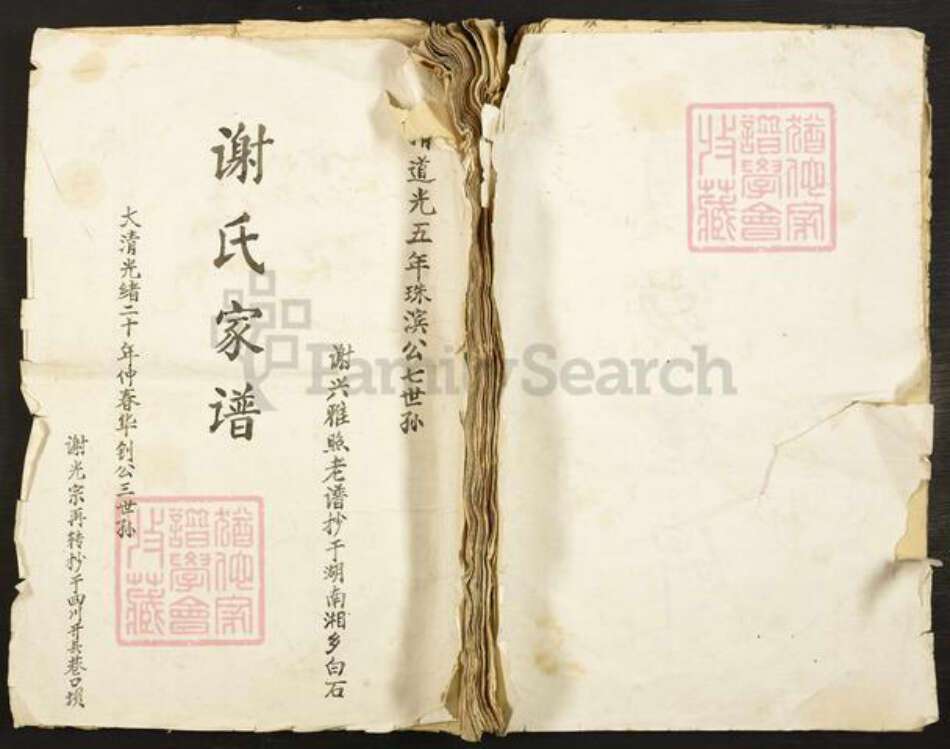 清道光五年珠滨公七世孙
谢兴雅照老谱抄于湖南湘乡白石
谢氏家谱
大清光绪二十年仲春华钊公三世孙
谢光宗再转抄于四川开县巷口坝
犹他家
谱学会
收藏
犹他家
谱学会
收藏
FamilySearch